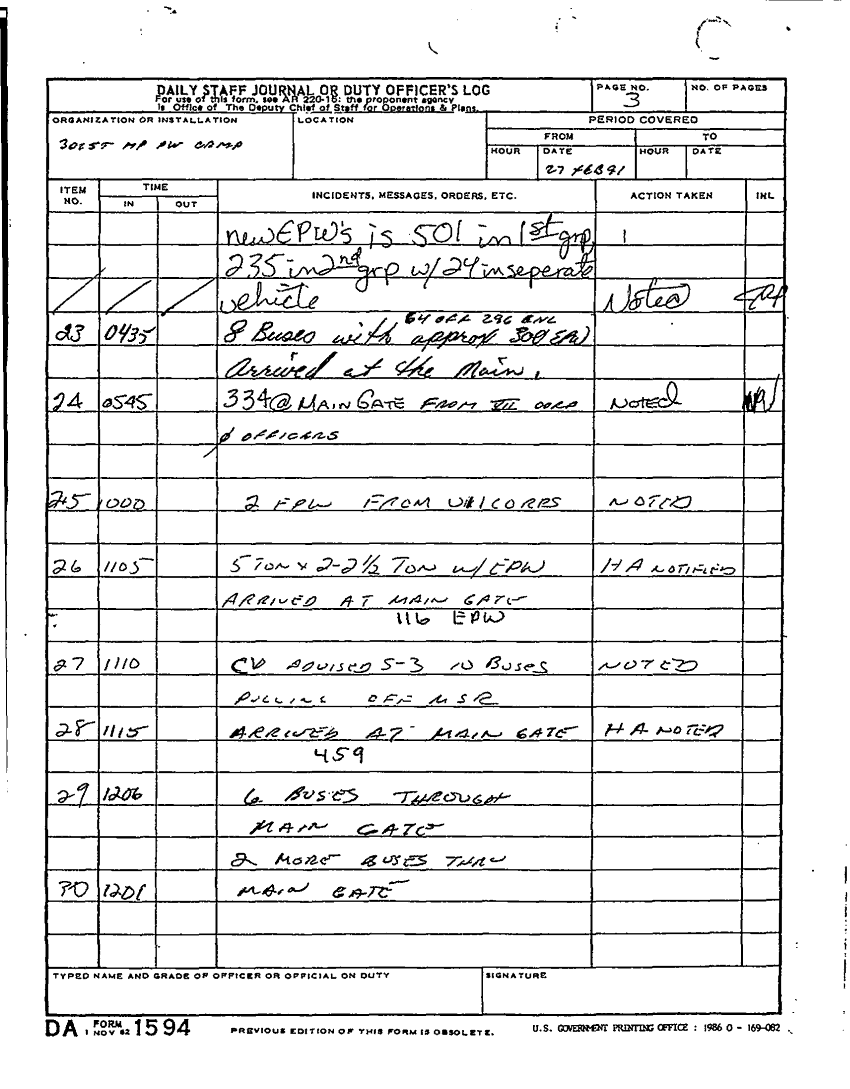 DAILY STAFF JOURNAL OR DUTY OFFICER'S LOG
For use of this form, see AR 220-15; the proponent agency
is Office of The Deputy Chief of Staff for Operations & Plans.
PAGE NO.
3
NO. OF PAGES
ORGANIZATION OR INSTALLATION
301ST MP PW CAMP
LOCATION
PERIOD COVERED
FROM
TO
HOUR
DATE
27 FEB 91
HOUR
DATE
ITEM NO.
TIME
IN
OUT
INCIDENTS, MESSAGES, ORDERS, ETC.
ACTION TAKEN
INL
new EPW's is 501 in 1st grp,
235 in 2nd grp w/ 24 in seperate
vehicle Noted
64 OFF 236 ENL
23 0435 8 Buses with approx 300 EPW
Arrived at the Main.
24 0545 334 @ MAIN GATE FROM VII CORP NOTED
Ø OFFICERS
25 1000 2 EPW FROM VII CORPS NOTED
26 1105 5 TON x 2-2½ TON w/ EPW HA NOTIFIED
ARRIVED AT MAIN GATE
116 EPW
27 1110 CV ADVISED S-3 10 BUSES NOTED
PULLING OFF MSR
28 1115 ARRIVED AT MAIN GATE HA NOTED
459
29 1206 6 BUSES THROUGH
MAIN GATE
2 MORE BUSES THRU
30 1201 MAIN GATE
TYPED NAME AND GRADE OF OFFICER OR OFFICIAL ON DUTY
SIGNATURE
DA FORM 1 NOV 62 1594
PREVIOUS EDITION OF THIS FORM IS OBSOLETE.
U.S. GOVERNMENT PRINTING OFFICE : 1986 O - 169-082